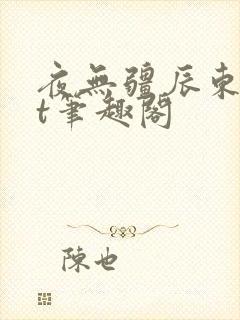 夜無疆辰東
t筆趣閣
陳也